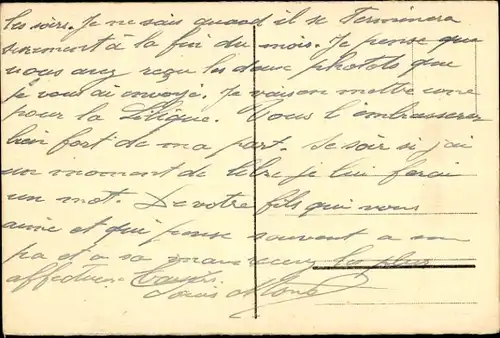 les soirs. Je ne sais quand il se terminera
surement à la fin du mois. Je pense que
vous avez reçu les deux photots que
je vous ai envoyé. Je vais en mettre une
pour la. Vous l'embrasserez
bien fort de ma part. Ce soir si j'ai
un moment de libre je lui ferai
un mot. De votre fils qui vous
aime et qui pense souvent a son
pa et a sa man recevez les plus
affectueux
Louis